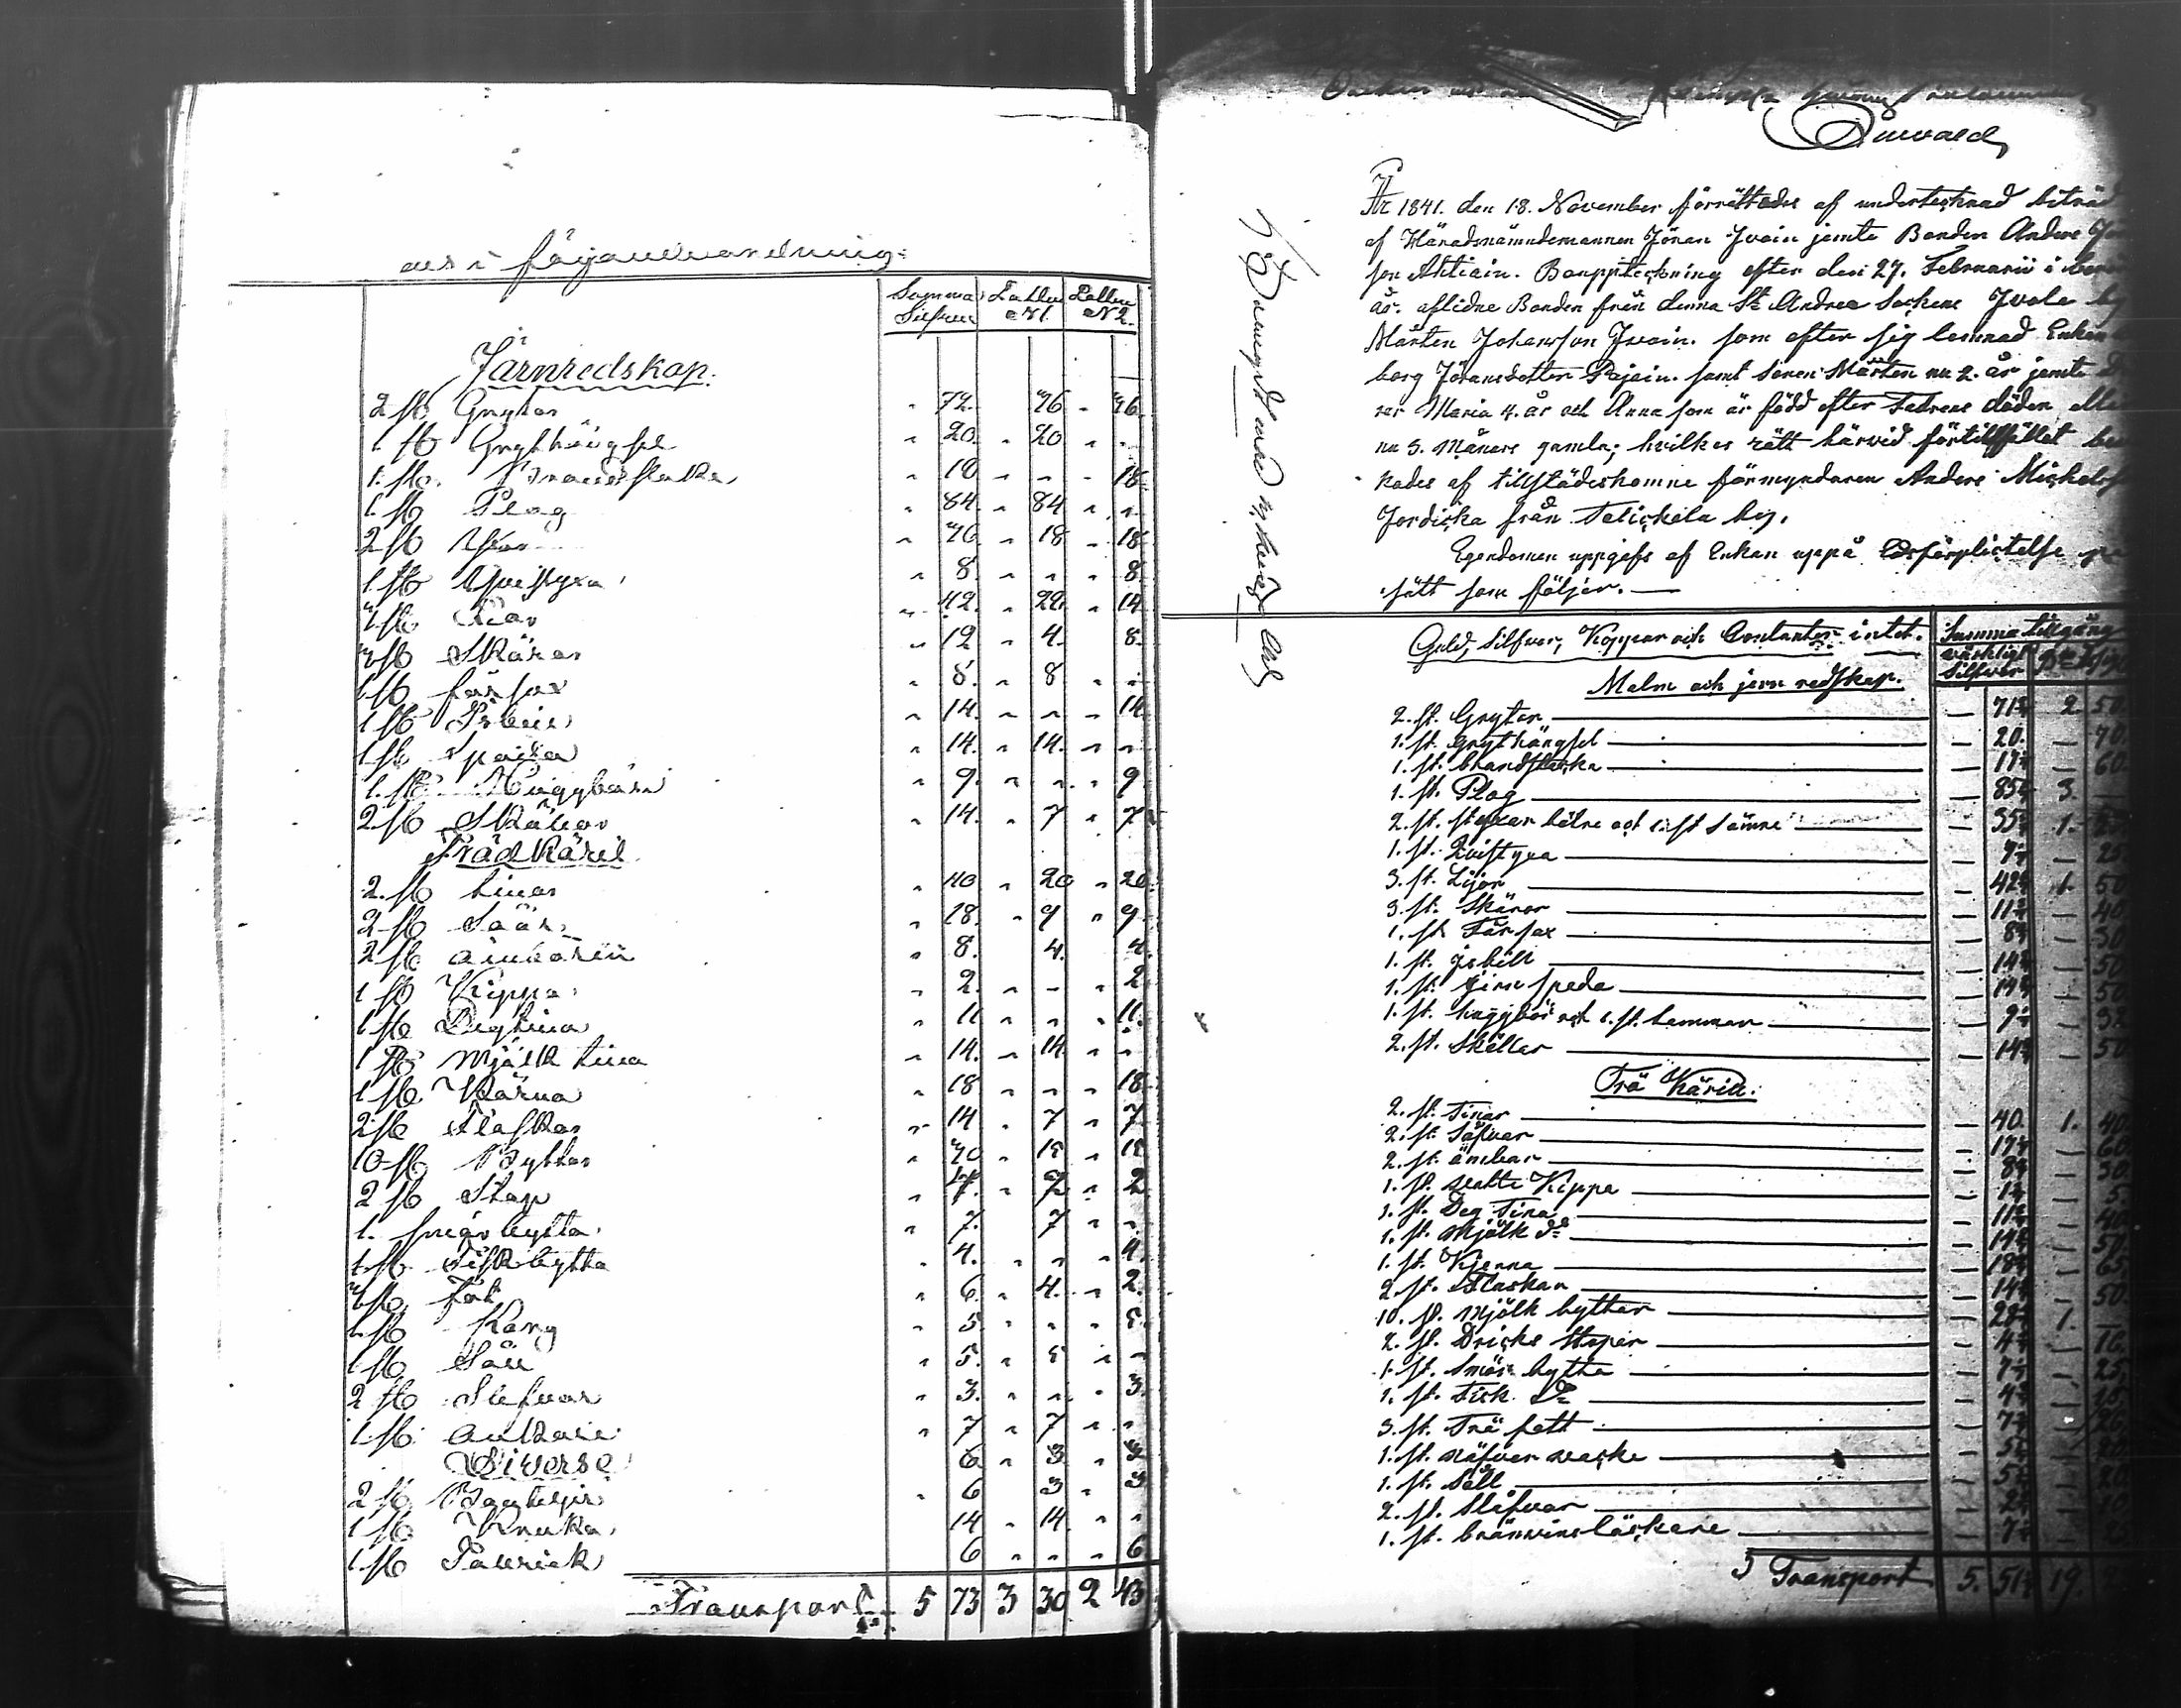 Summa Silfver Lotten N 1. Lotten N 2.
Järnredskap.
2 st Grytor " 72. " 36 " 36
1 st Grythängsel " 20. " 20 " "
1 st Brandstaka " 18 " " " 18
1 st Plog " 84 " 84 " "
2 st Yxor " 36 " 18 " 18
1 st Qvistyxa " 8. " " " 8
3 st Liar " 42. " 28. " 14
3 st Skäror " 12 " 4. " 8.
1 st fårsax " 8. " 8 " "
1 st Isbill " 14. " " " 14
1 st Spada " 14. " 14. " "
1. st Huggbår " 9. " " " 9
2 st Skällor " 14. " 7 " 7
Trädkäril
2. st tinor " 40 " 20 " 20
2 st Såår " 18. " 9 " 9
2 st ämbaren " 8. 4. 4.
1 st Kippa " 2. " " " 2
1 st Degtina " 11 " " " 11.
1 st Mjölk tina " 14. " 14. " "
1 st Kärna " 18 " " " 18
2 st Flaskor " 14 " 7 " 7
10 st Byttor " 30 " 15 " 15
2 st Stop " 4. " 2 " 2
1. smörbytta " 7. 7 " "
1 st Fiskbytta " 4. " " " 4.
3 st fat " 6. " 4. " 2.
1 st Korg " 5. " " " 5.
1 st Såll " 5. " 5 " "
2 st Slefvar " 3. " " " 3.
1 st ankare " 7 " 7 " "
Diverse 6 " 3 " 3
2 st " 6 3 " 3
1 st Kruka 14 " 14. " "
1 st 6 " " " 6
Transport 5 73 3 30 2 43
År 1841. den 18. November förrättades af undertecknad biträd
af Häradsnämndemannen Jöran Ivain jemte Bonden Anders
son Ahtiain. Bouppteckning efter den 27. Februarii i
år aflidne Bonden från denna St Andree Sockens Ivala by
Mårten Johansson Ivain. som efter sig lemnad Enkan
borg Jöransdotter Pajain. samt sonen Mårten nu 2. år jemte
rar Maria 4. år och Anna som är född efter Fadrens döden
nu 3. Måners gamla; hvilkas rätt härvid förtillfället
kades af tillstädeskomne förmyndaren Anders Michels
Jordicka från Talickala by.
Egendomen uppgifs af Enkan uppå Edsförplictelse
sätt som följer.
Guld, Silfver, Koppar och Contanter intet. Summa tillgång
wärkligt Silfver
Malm och jern redskap.
2. st. Grytor — 71 2 50
1. st. grythängsel — 20. — 70
1. st. brandstacka — 17 — 60
1. st. Plog — 85 3.
2. st. styxar bätre och 1. st sämre — 35 1.
1. st. Qvistyxa — 7 — 25
3. st. Lijor — 42 1. 50
3. st. Skäror — 11 — 40
1. st. Fårsax — 8 — 30
1. st. jsbill — 14 — 50
1. st. jern spada — 14 — 50
1. st. huggbår och 1. st. hammar — 9 — 32
2. st. Skällor — 14 — 50
Trä Käril:
2. st. Tinar — 40. 1. 40
2. st. Såfvar — 17 — 60
2. st. ämbar — 8 — 30
1. st. vatte Kippa — 1 — 5
1. st. Deg Tina — 11 — 40
1. st. Mjölk do — 14 — 50
1. st. Kjerna — 18
2. st. Flaskar — 14 — 50
10. st. Mjölk byttor — 28 1. —
2. st. Dricke Stopar — 4 — 16
1. st. Smör bytta — 7 — 25
1. st. Fisk do — 4
3. st. Trä fatt — 7
1. st. näfver — 5
1. st. Såll — 5
2. st. Slefvar — 2
1. st. bränvins läckare — 7
Transport 5. 51 19.